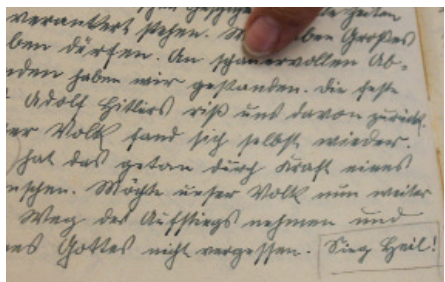 verankert stehen. Wir haben Großes
ben dürfen. An schauervollen Ab-
nden haben wir gestanden. Die feste
Adolf Hitlers riß uns davon zurück.
er Volk fand sich selbst wieder.
hat das getan durch Kraft eines
nschen. Möchte unser Volk nun weiter
Weg des Aufstiegs nehmen und
es Gottes nicht vergessen. Sieg Heil!